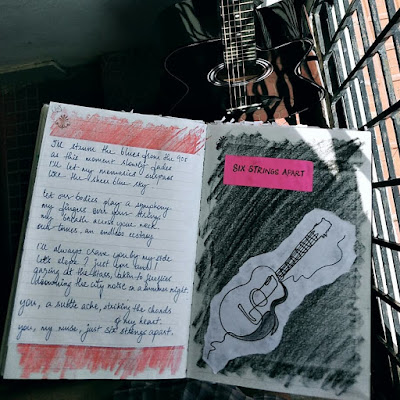 I'll strum the blues from the 90s
as this moment slowly fades
I'll let my memories eclipse
like the sheer blue sky
let our bodies play a symphony
my fingers over your strings
my breath across your neck
such tunes, an endless ecstasy
I'll always crave you by my side
let's elope? just you and I
gazing at the stars, listen to
the city notes in a summer night.
you, a subtle ache, striking the chords
of my heart.
you, my muse, just six strings apart.
SIX STRINGS APART